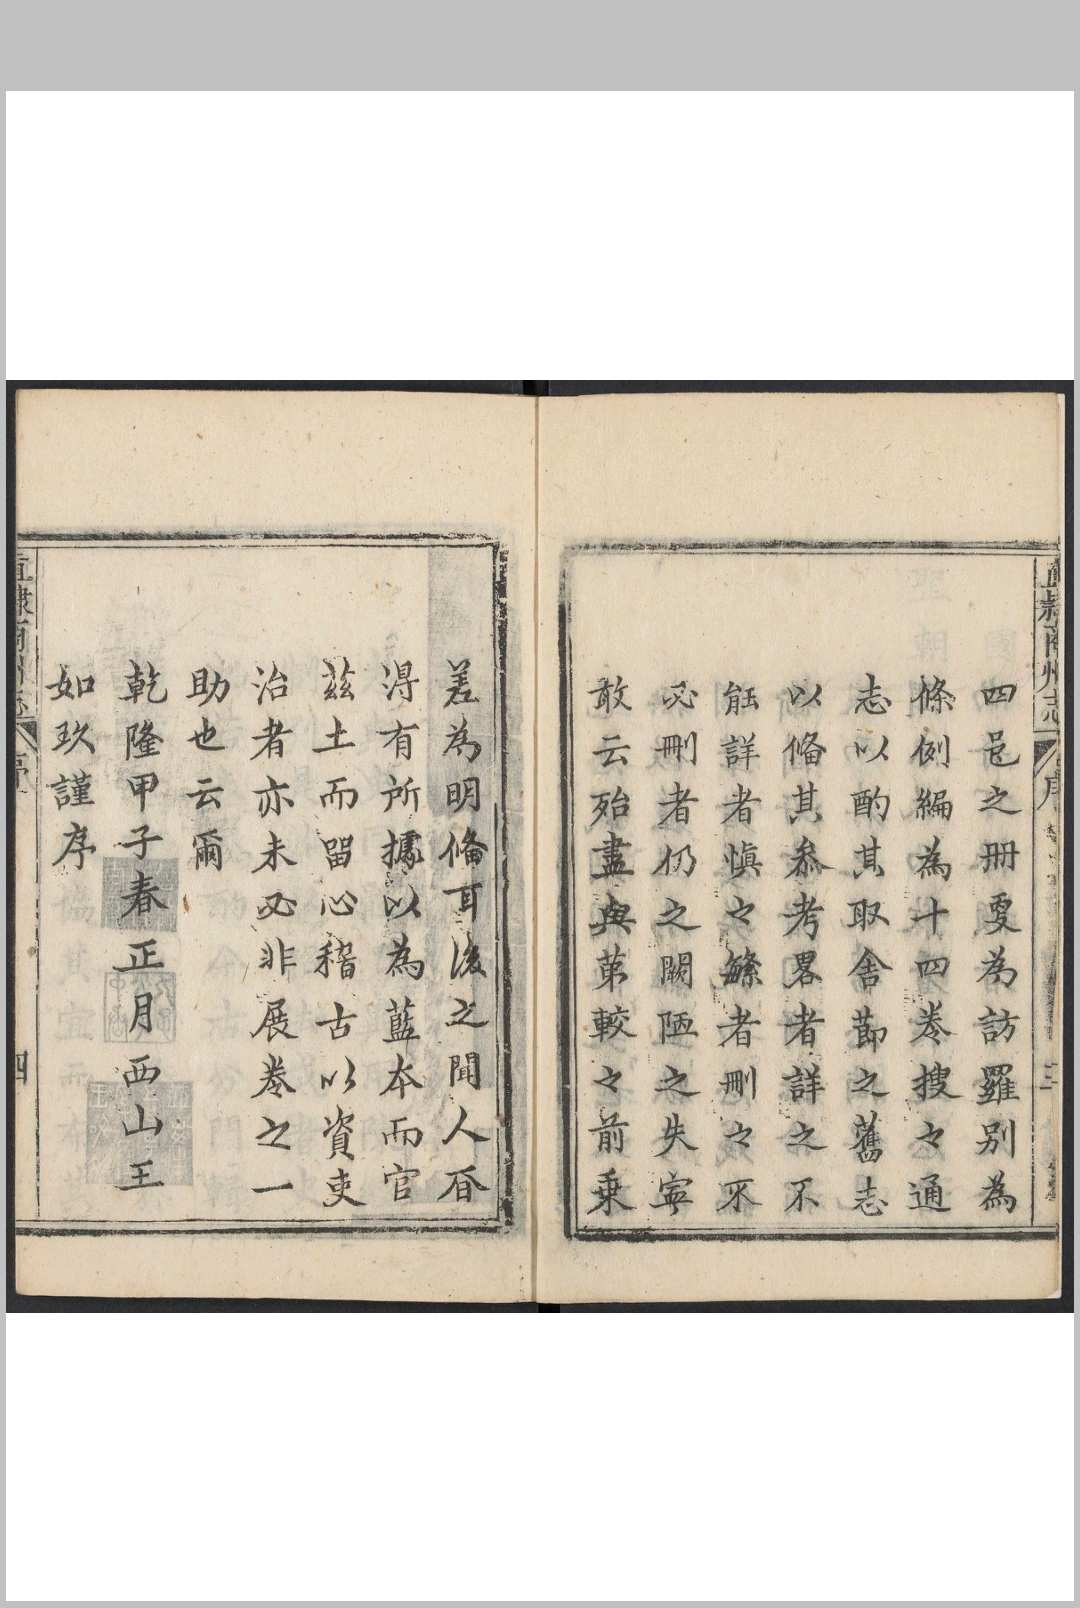 直隸商州志
序
四邑之冊更為訪羅別為
條例編為十四卷搜々通
志以酌其取舍節之舊志
以俻其叅考畧者詳之不
能詳者慎之繁者刪之不
必刪者仍之闕陋之失寧
敢云殆盡與第較之前乗
差為明俻耳後之聞人㫺
得有所據以為藍本而官
茲土而留心稽古以資吏
治者亦未必非展卷之一
助也云爾
乾隆甲子春正月西山王
如玖謹序
直隸商州志
序
四